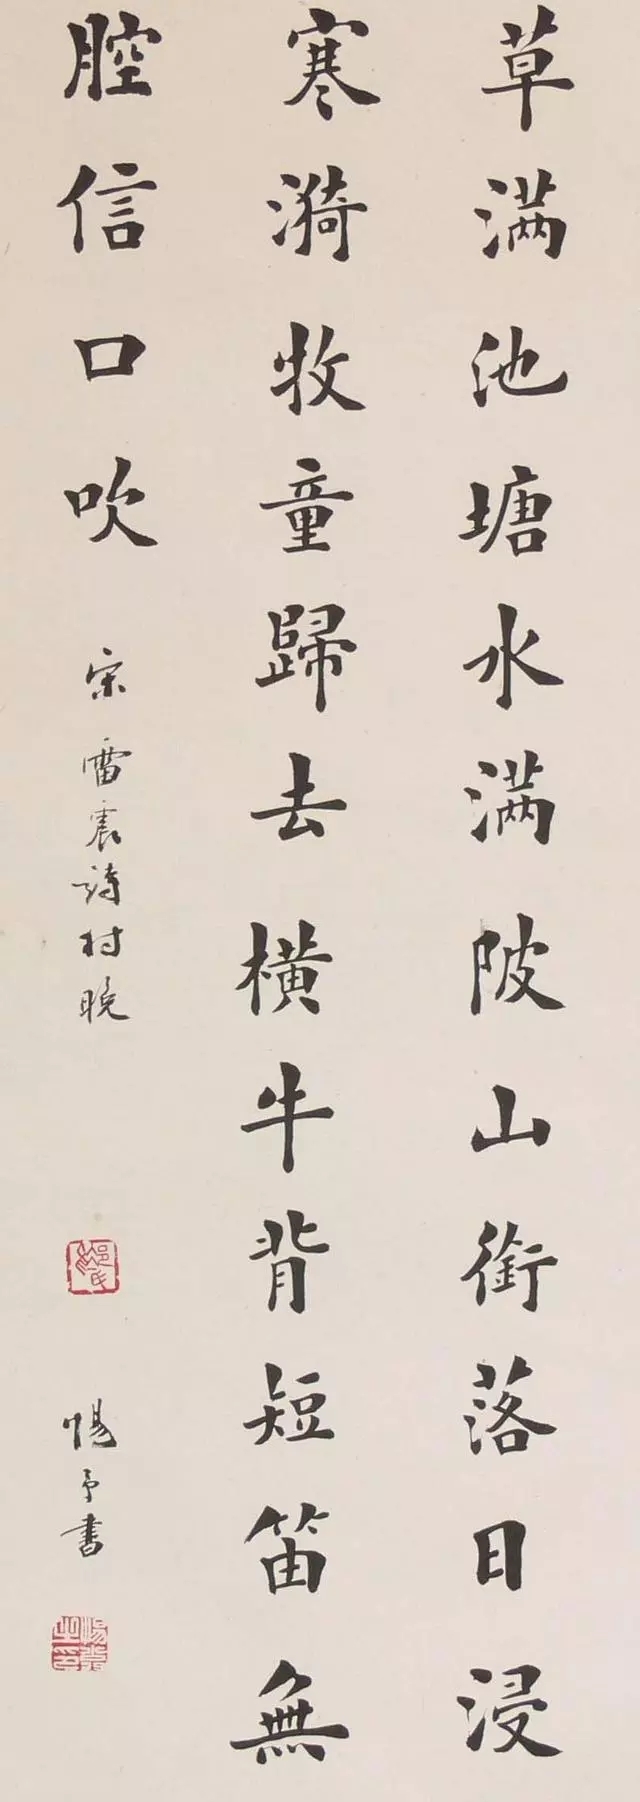 草满池塘水满陂山銜落日浸
寒漪牧童歸去横牛背短笛無
腔信口吹
宋雷震詩村晚
惕予書